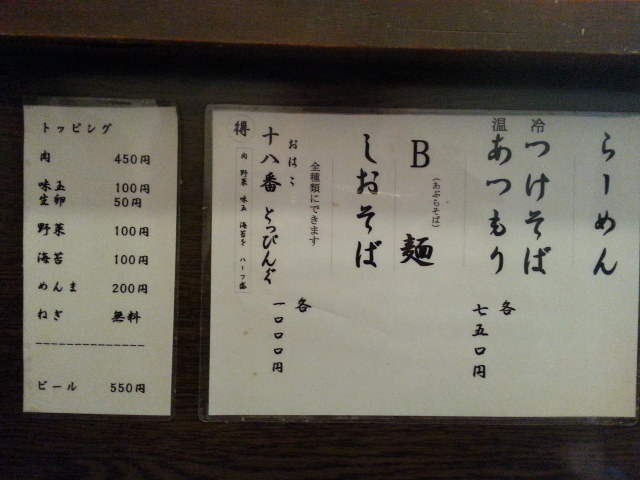 らーめん
冷 つけそば
温 あつもり
各 七五〇円
B麺
(あぶらそば)
しおそば
全種類にできます
各 一〇〇〇円
おはこ
十八番 とっぴんぐ
得 肉 野菜 味玉 海苔を ハーフ盛
トッピング
肉 450円
味玉 100円
生卵 50円
野菜 100円
海苔 100円
めんま 200円
ねぎ 無料
ビール 550円